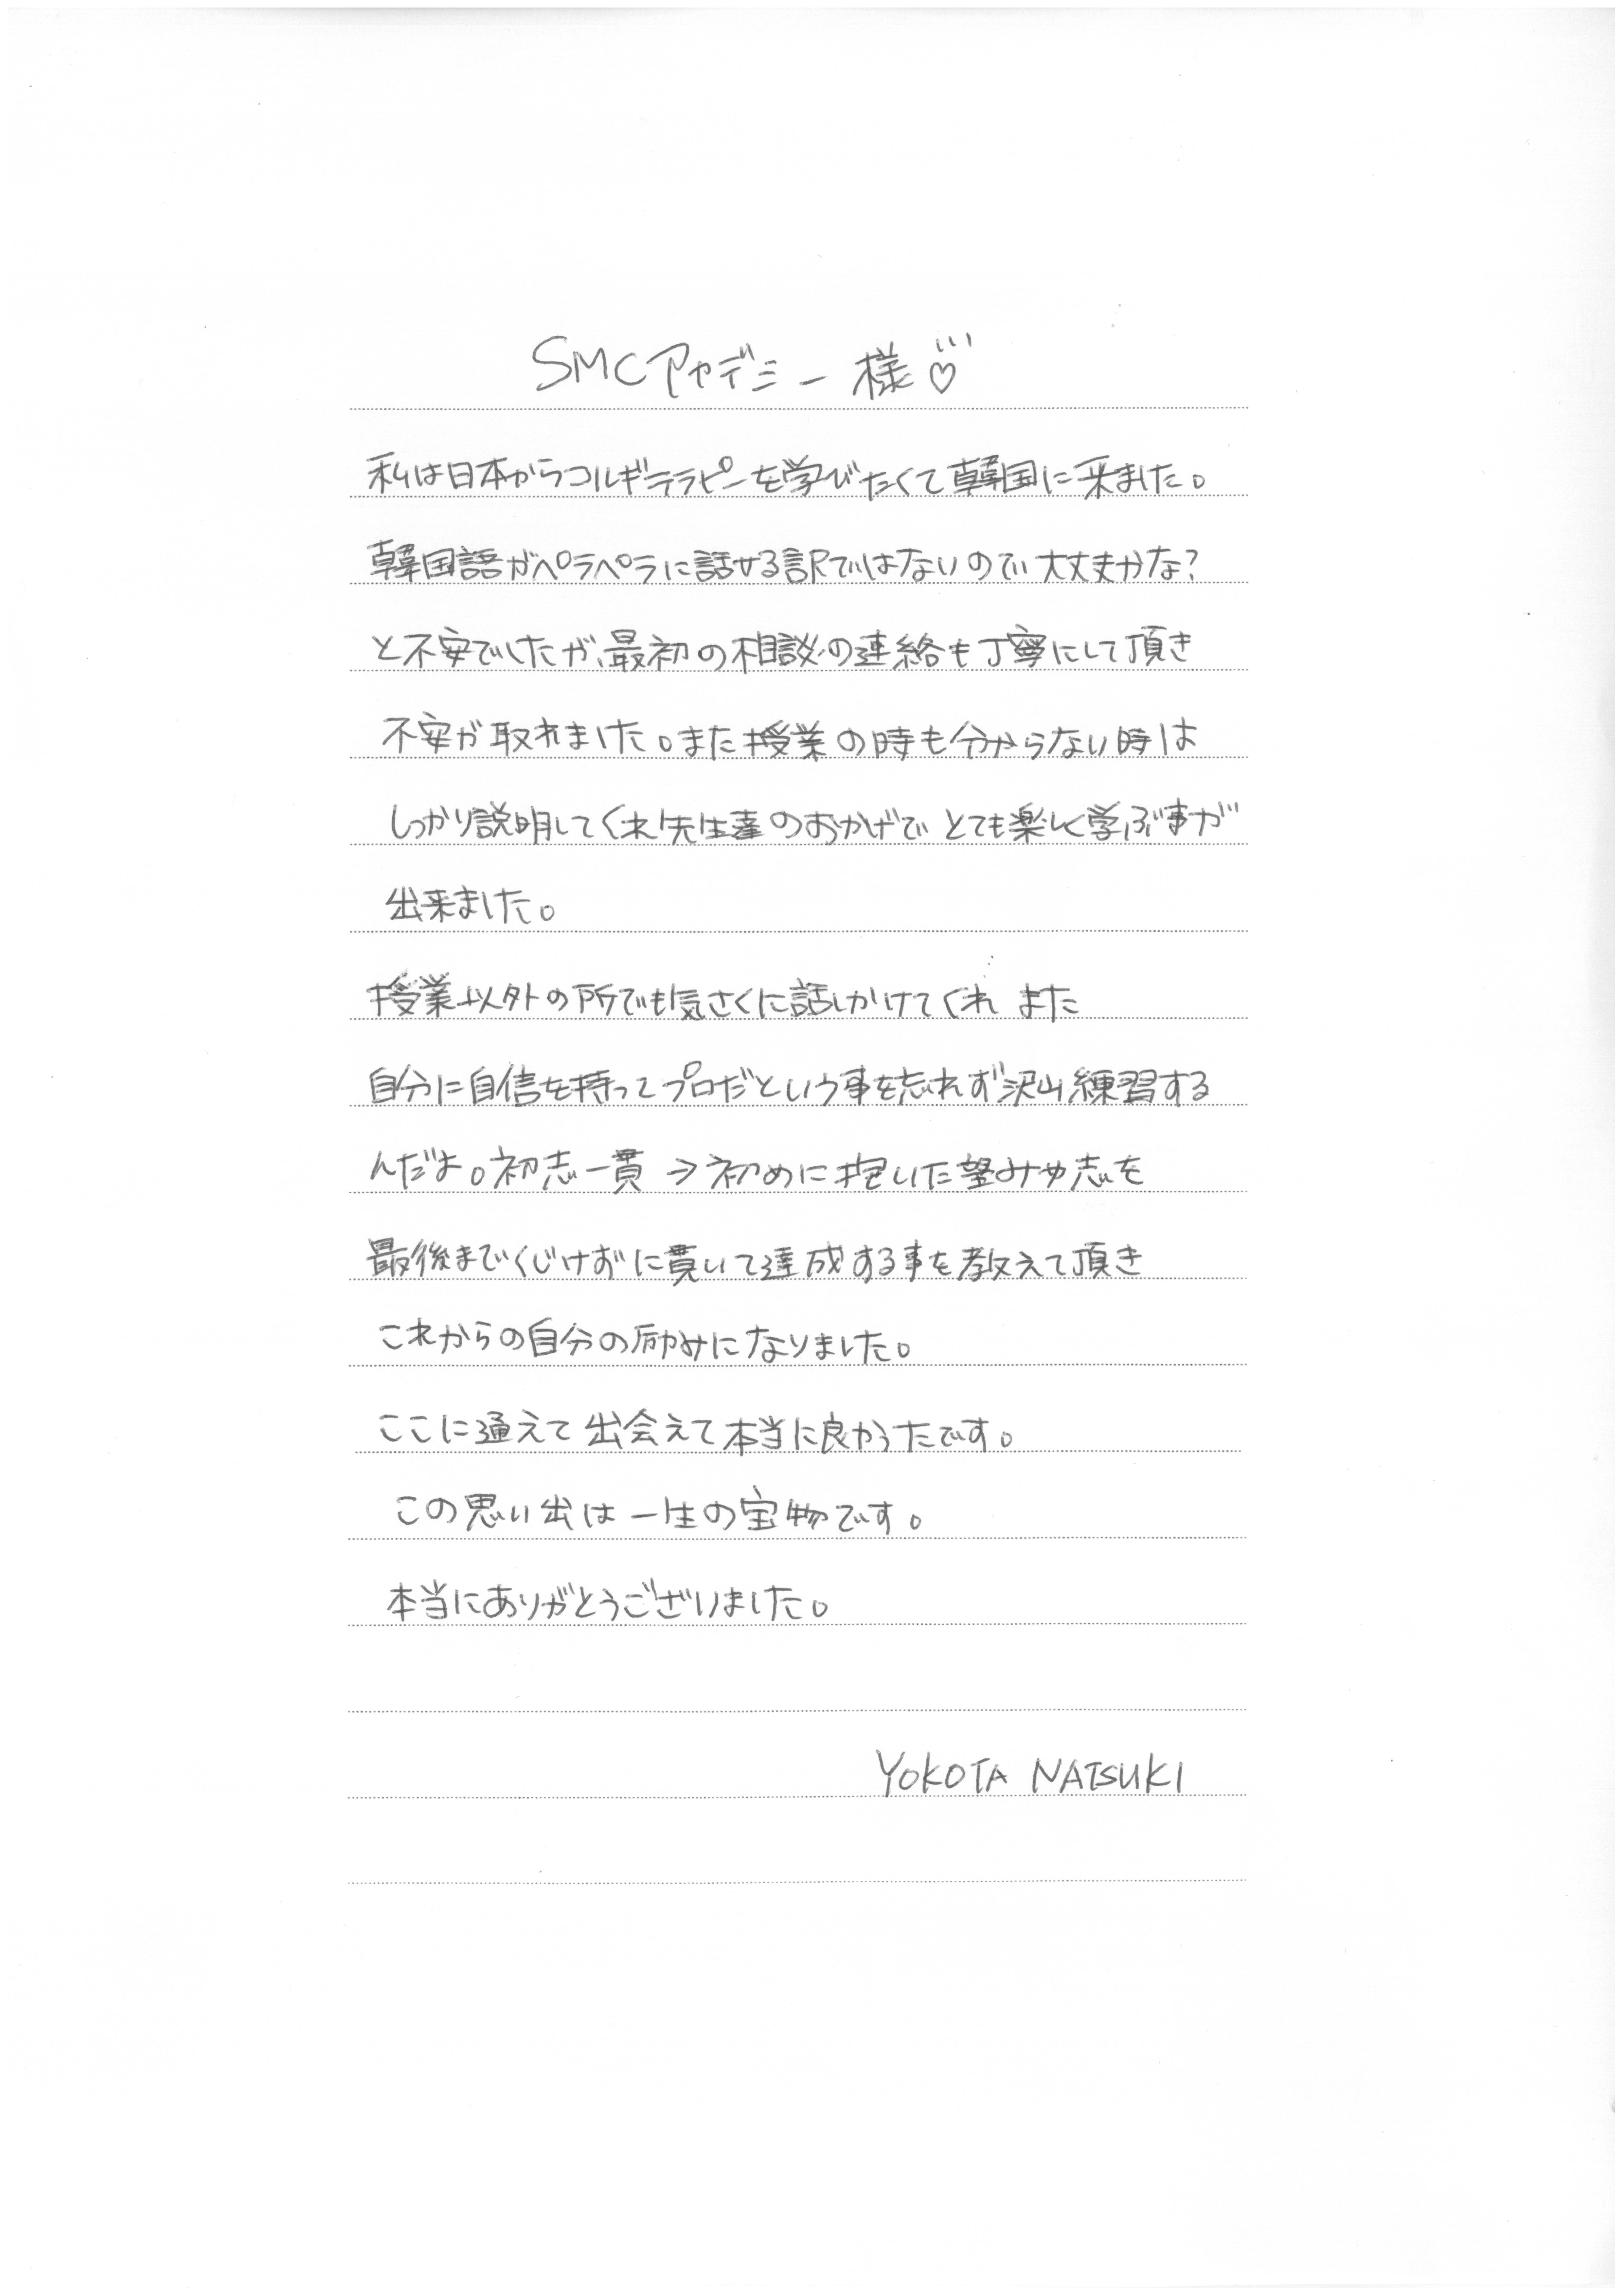 SMCアカデミー様♡
私は日本からコルギテラピーを学びたくて韓国に来ました。
韓国語がペラペラに話せる訳ではないので大丈夫かな?
と不安でしたが、最初の相談の連絡も丁寧にして頂き
不安が取れました。また授業の時も分からない時は
しっかり説明してくれ先生達のおかげでとても楽しく学ぶ事が
出来ました。
授業以外の所でも気さくに話しかけてくれ また
自分に自信を持ってプロだという事を忘れず沢山練習する
んだよ。初志一貫→初めに抱いた望みや志を
最後までくじけずに貫いて達成する事を教えて頂き
これからの自分の励みになりました。
ここに通えて出会えて本当に良かったです。
この思い出は一生の宝物です。
本当にありがとうございました。
YOKOTA NATSUKI